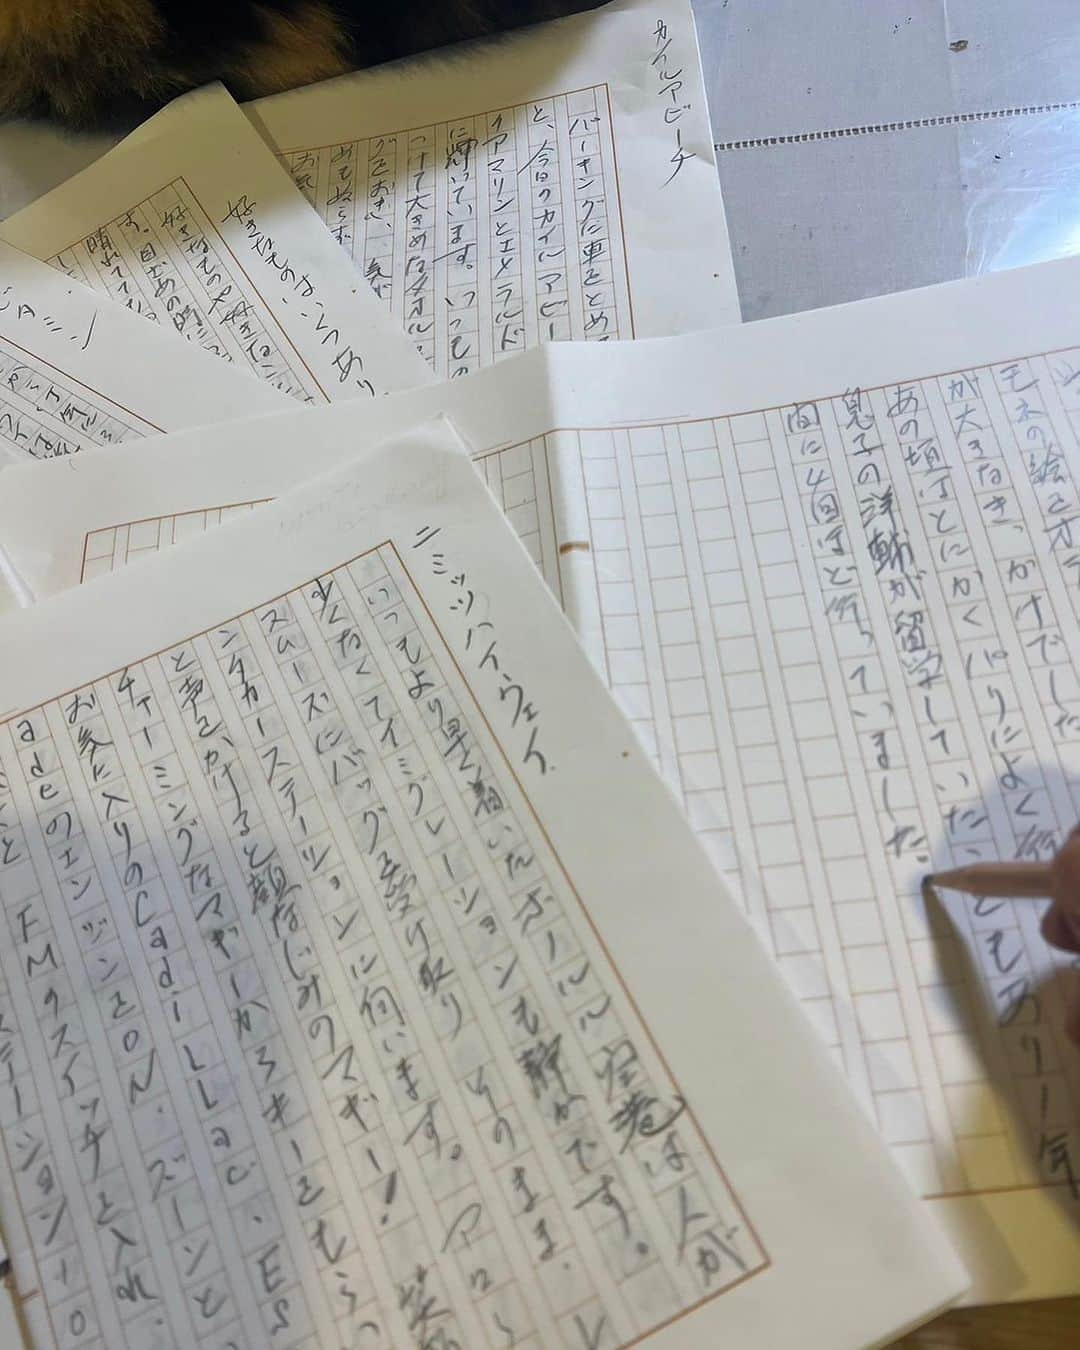 カイルアビーチ
パーキングに車をとめ
と、今日のカイルアビー
アマリンとエメラルド
に輝いています。いつもの
つけて大きめなタオル
グをおき、気が
めてぬらず
お気
好きなものはいつもあり
好きなもの大好きな
す。目ざめの時
晴れている
ビタミン
モネの絵とオラ
が大きなきっかけでした
あの頃はとにかくパリによく行
息子の洋輔が留学していたこともあり一年
間に4回ほど行っていました。
ニミッツハイウェイ
いつもより早く着いたホノルル空港は人が
少なくてイミグレーションも静かです。
スムーズにバッグを受け取りそのまま、レ
ンタカーステーションに伺います。アロハ
と声をかけると顔なじみのマギー!笑顔
チャーミングなマギーからキーをもらっ
お気に入りのCadillac、ES
adeのエンジンをON、ズーンと
FMのスイッチを入れ、
ステーション10